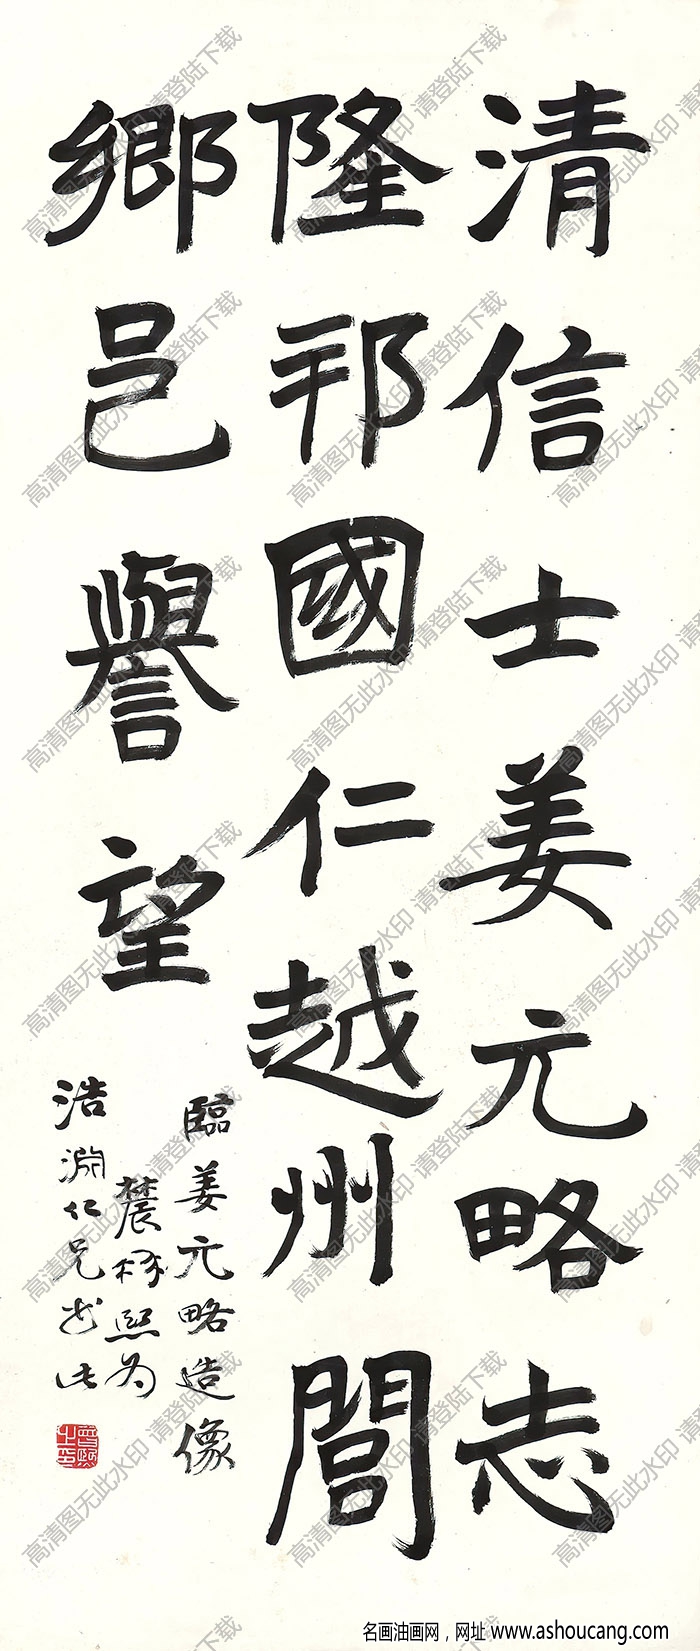 清信士姜元略志
隆邦國仁越州閭
鄉邑譽望
臨姜元略造像
農髯熙为
浩仁兄此
曾熙之印
高清图无此水印 请登陆下载
名画油画网，网址 www.ashoucang.com